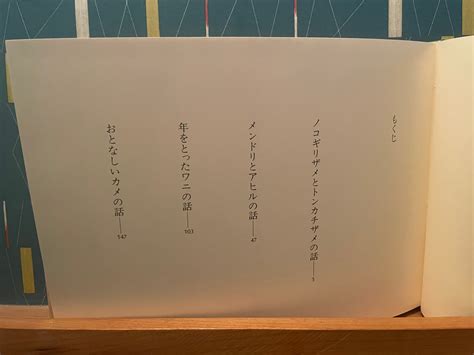 もくじ
ノコギリザメとトンカチザメの話——5
メンドリとアヒルの話——47
年をとったワニの話——103
おとなしいカメの話——147